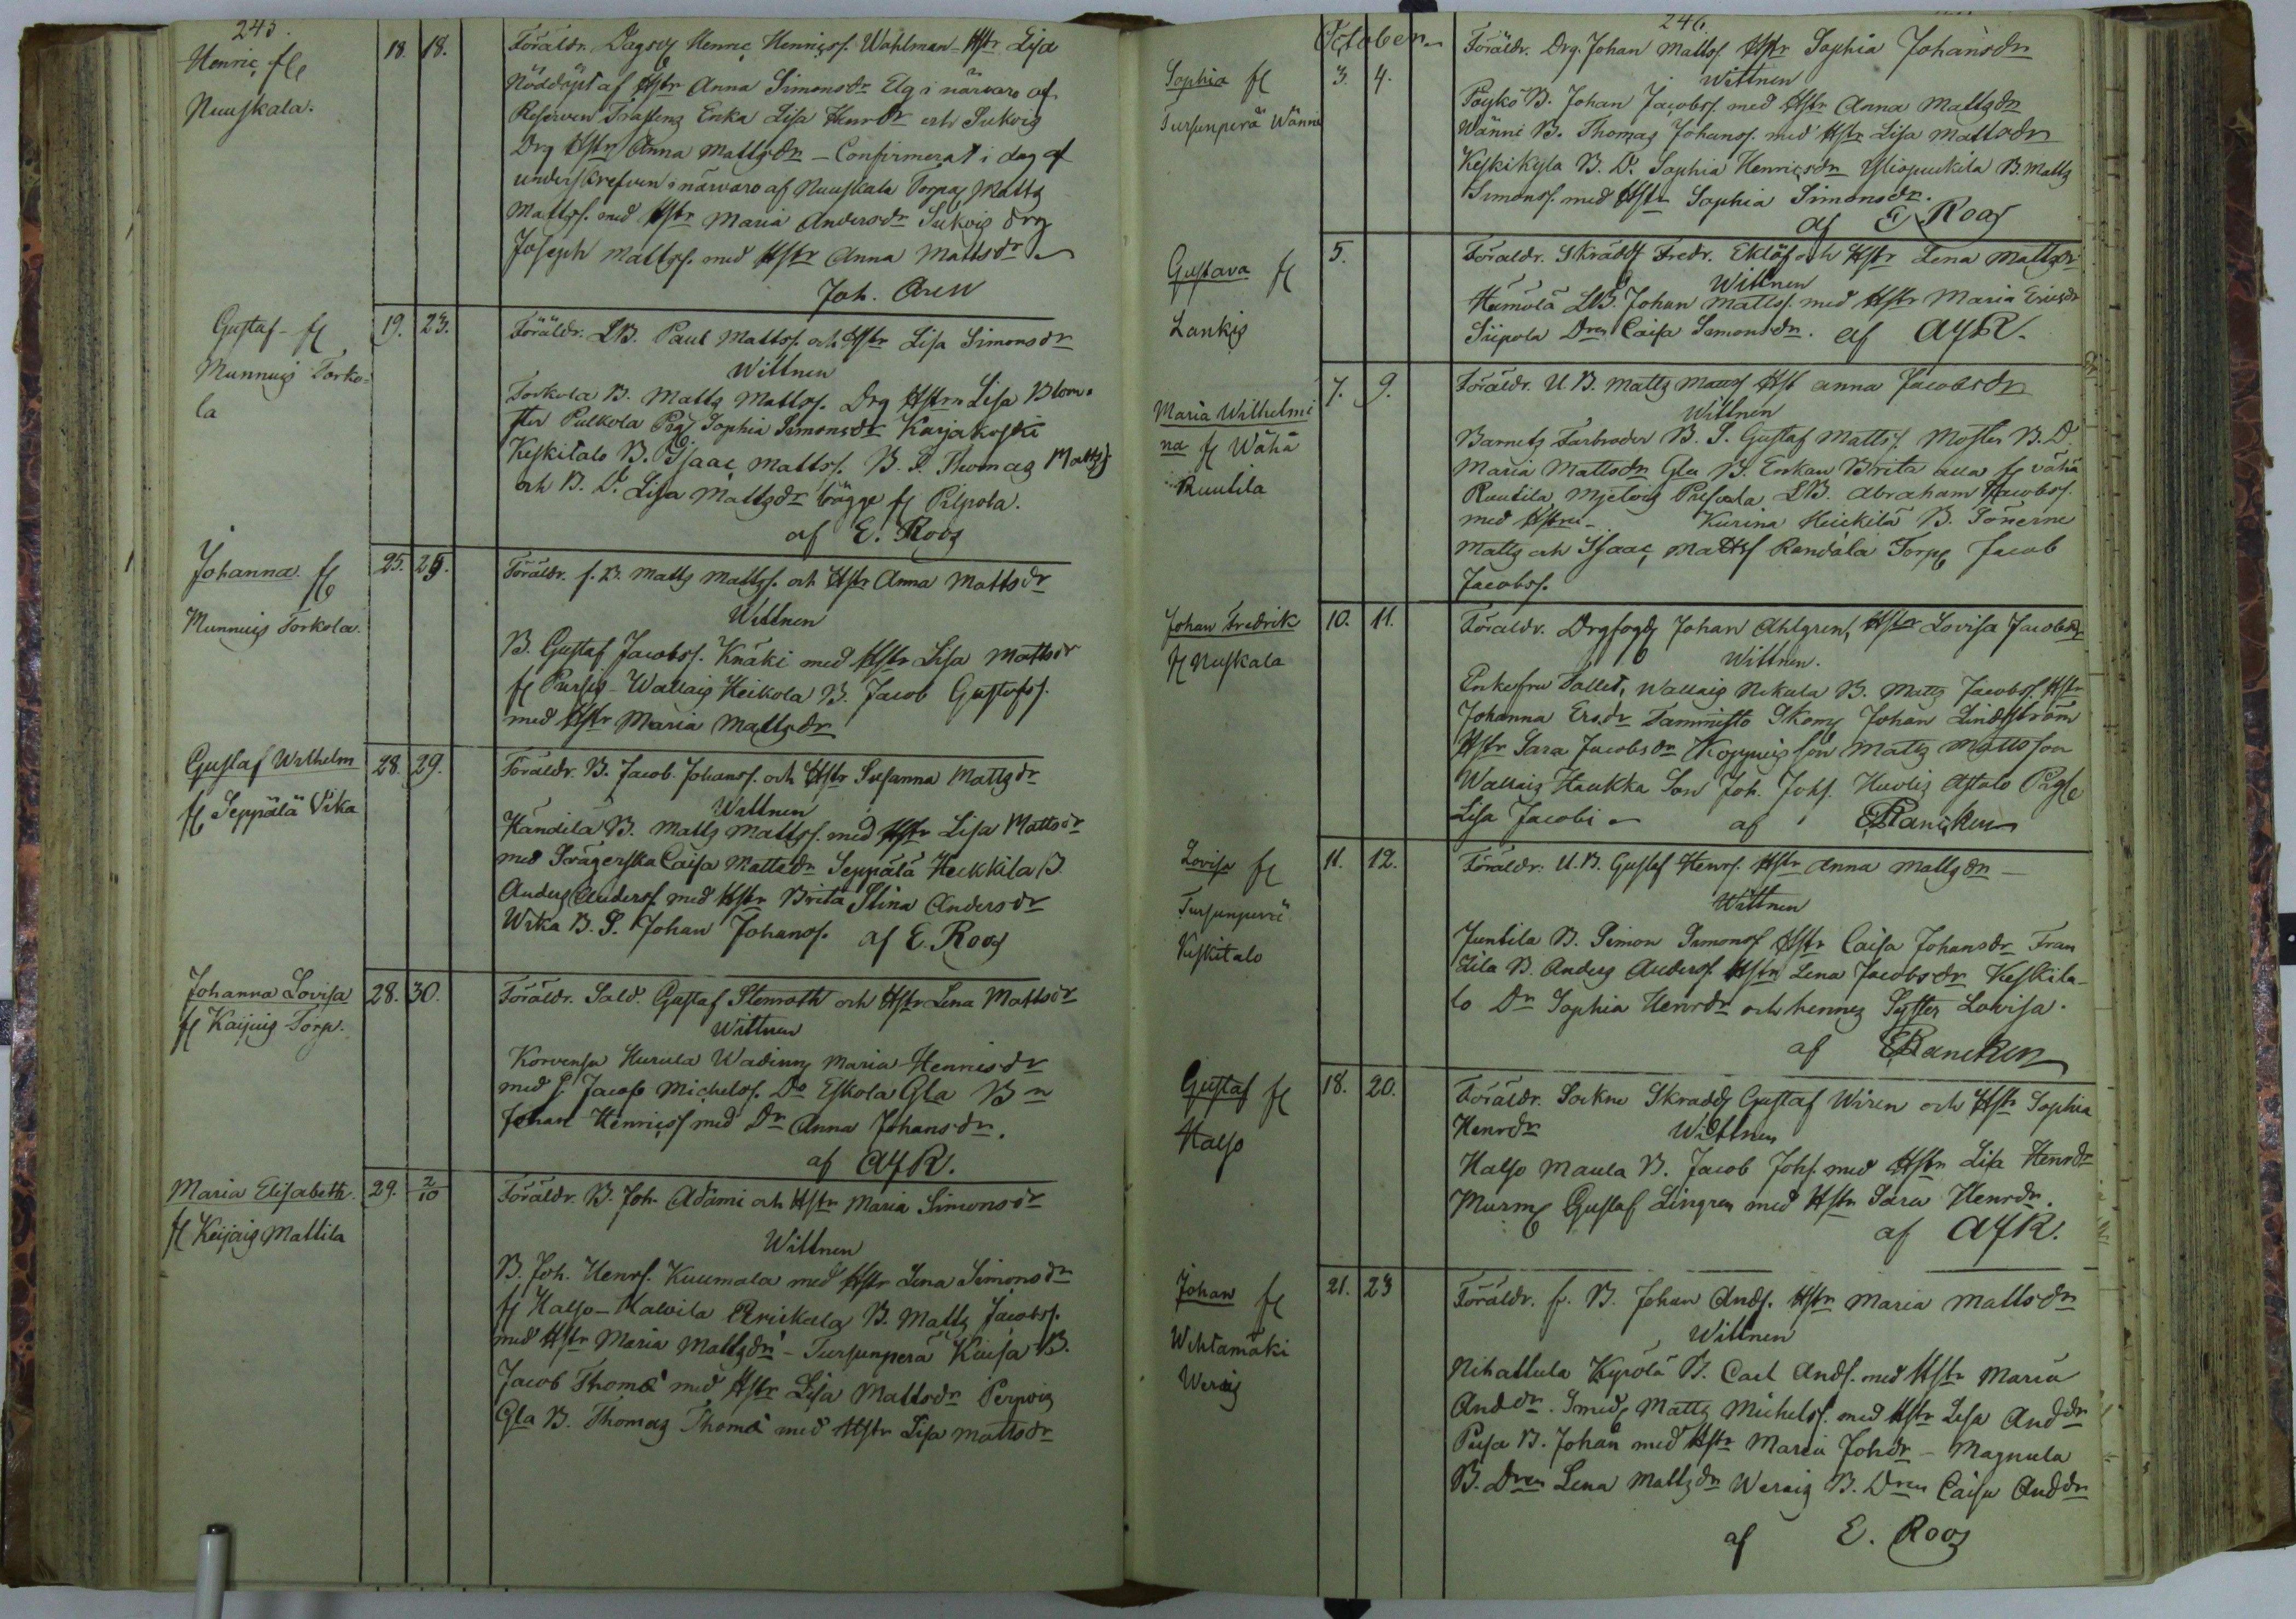 245.
Henric fl
Nuuskala.
18. 18.
Föräldr. Dagsv Henric Henricss. Wahlman Hstr Lisa
Nöddöpt af Hstr Anna Simonsdr Elg i närvaro af
Reserven Enka Lisa Henrdr och
Drg Hstr Anna Mattsdr – Confirmerat i dag af
underskrefven i närvaro af Nuuskala Torpaj Matts
Mattss. med Hstr Maria Andersdr Drg
Joseph Mattss. med Hstr Anna Mattsdr
Joh. Aren
Gustaf fl
Munnuis Torko=
la
19. 23.
Föräldr. LB. Paul Mattss. och Hstr Lisa Simonsdr
Wittnen
Torkola B. Matts Mattss. Drg Hstrn Lisa Blom=
ster Pulkola Pigs Sophia Simonsdr Karjakoski
Keskitalo B. Isaac Mattss. B. S. Thomas Mattss
och B. D. Lisa Mattsdr bägge fl Pilpola.
af E. Roos
Johanna fl
Munnuis Torkola.
25. 25.
Föräldr. f. B. Matts Mattss. och Hstr Anna Mattsdr
Wittnen
B. Gustaf Jacobss. Knäki med Hstr Lisa Mattsdr
fl Wallais Heikola B. Jacob Gustafss.
med Hstr Maria Mattsdr
Gustaf Wilhelm
fl Seppälä Vika
28. 29.
Föräldr. B. Jacob Johanss. och Hstr Susanna Mattsdr
Wittnen
Händilä B. Matts Mattss. med Hstr Lisa Mattsdr
med Svägerska Caisa Mattsdr Seppälä Heikkila B.
Anders Anderss. med Hstr Brita Stina Andersdr
Wika B. S. Johan Johanss. af E. Roos
Johanna Lovisa
fl Kaijuis Torp.
28. 30.
Föräldr. Sald. Gustaf Stenroth och Hstr Lena Mattsdr
Wittnen
Korvensu Hurula Maria Henricsdr
med Jacob Michelss. Do Eskola Gla Bn
Johan Henricss med Dr Anna Johansdr.
af AfR.
Maria Elisabeth.
fl Keijais Mattila
29. 2/10
Föräldr. B. Joh. Adami och Hstr Maria Simonsdr
Wittnen
B. Joh. Henrs. Kuumala med Hstr Lena Simonsdr
fl Kalso – Kalvila B. Matts Jacobss.
med Hstr Maria Mattsdr – Tursunperä Kaisa B.
Jacob Thomæ med Hstr Lisa Mattsdr
Gla B. Thomas Thomæ med Hstr Lisa Mattsdr
246.
October
Sophia fl
Tursunperä Wänni
3. 4.
Föräldr. Drg. Johan Mattss. Hstr Sophia Johansdr
Wittnen
Poyko B. Johan Jacobss. med Hstr Anna Mattsdr
Wänni B. Thomas Johanss. med Hstr Lisa Mattsdr
Keskikyla B. D. Sophia Henricsdr B. Matts
Simonss. med Hstr Sophia Simonsdr.
af E. Roos
Gustava fl
Lankis
5.
Föräldr. Skrädd Fredr. Eklöf och Hstr Lena Mattsdr
Wittnen
Hämölä LB. Johan Mattss. med Hstr Maria Ericsdr
Siipola Drn Caisa Simonsdr. af AfR.
Maria Wilhelmi
na fl Wähä
Ruutila
7. 9.
Föräldr. U. B. Matts Mattss Hst Anna Jacobsdr
Wittnen
Barnets Farbroder B. S. Gustaf Mattss. Moster B. D.
Maria Mattsdr Gla B. Enkan Brita alla fl Vähä
Ruutila LB. Abraham Jacobss.
med Hstru. Heickilä B. Sönerne
Matts och Isaac Mattss Randala Torp Jacob
Jacobss.
Johan Fredrik
fl Nuskala
10. 11.
Föräldr. Drgfogd Johan Ahlgren, Hstr Lovisa Jacobsdr
Wittnen.
Enkefru Wallais Nikula B. Matts Jacobss. Hstr
Johanna Ersdr Tammisto Skom Johan Lindström
Hstr Sara Jacobsdr son Matts Mattsson
Wallais Haukka Son Joh. Johs. Pig
Lisa Jacobi af
Lovisa fl
Tursunperä
Keskitalo
11. 12.
Föräldr. U. B. Gustaf Henrs. Hstr Anna Mattsdr
Wittnen
Juntila B. Simon Simonss Hstr Caisa Johansdr Fran
tila B. Anders Anderss. Hstr Lena Jacobsdr Keskita-
lo Dr Sophia Henrdr och hennes Syster Lovisa.
af
Gustaf fl
Kalso
18. 20.
Föräldr. Sockne Skrädd Gustaf Wiren och Hstr Sophia
Henrdr Wittnen
Kalso Maula B. Jacob Johs. med Hstr Lisa Henrdr
Murm Gustaf Lingren med Hstr Sara Henrdr.
af AfR.
Johan fl
Wihtamäki
21. 23
Föräldr. f. B. Johan Ands. Hstr Maria Mattsdr
Wittnen
Nihattula Kyrölä B. Carl Ands. med Hstr Maria
Anddr. Smed Matts Michelss. med Hstr Lisa Anddr
B. Johan med Hstr Maria Johdr – Magnula
B. Dren Lena Mattsdr B. Dren Caisa Anddr
af E. Roos